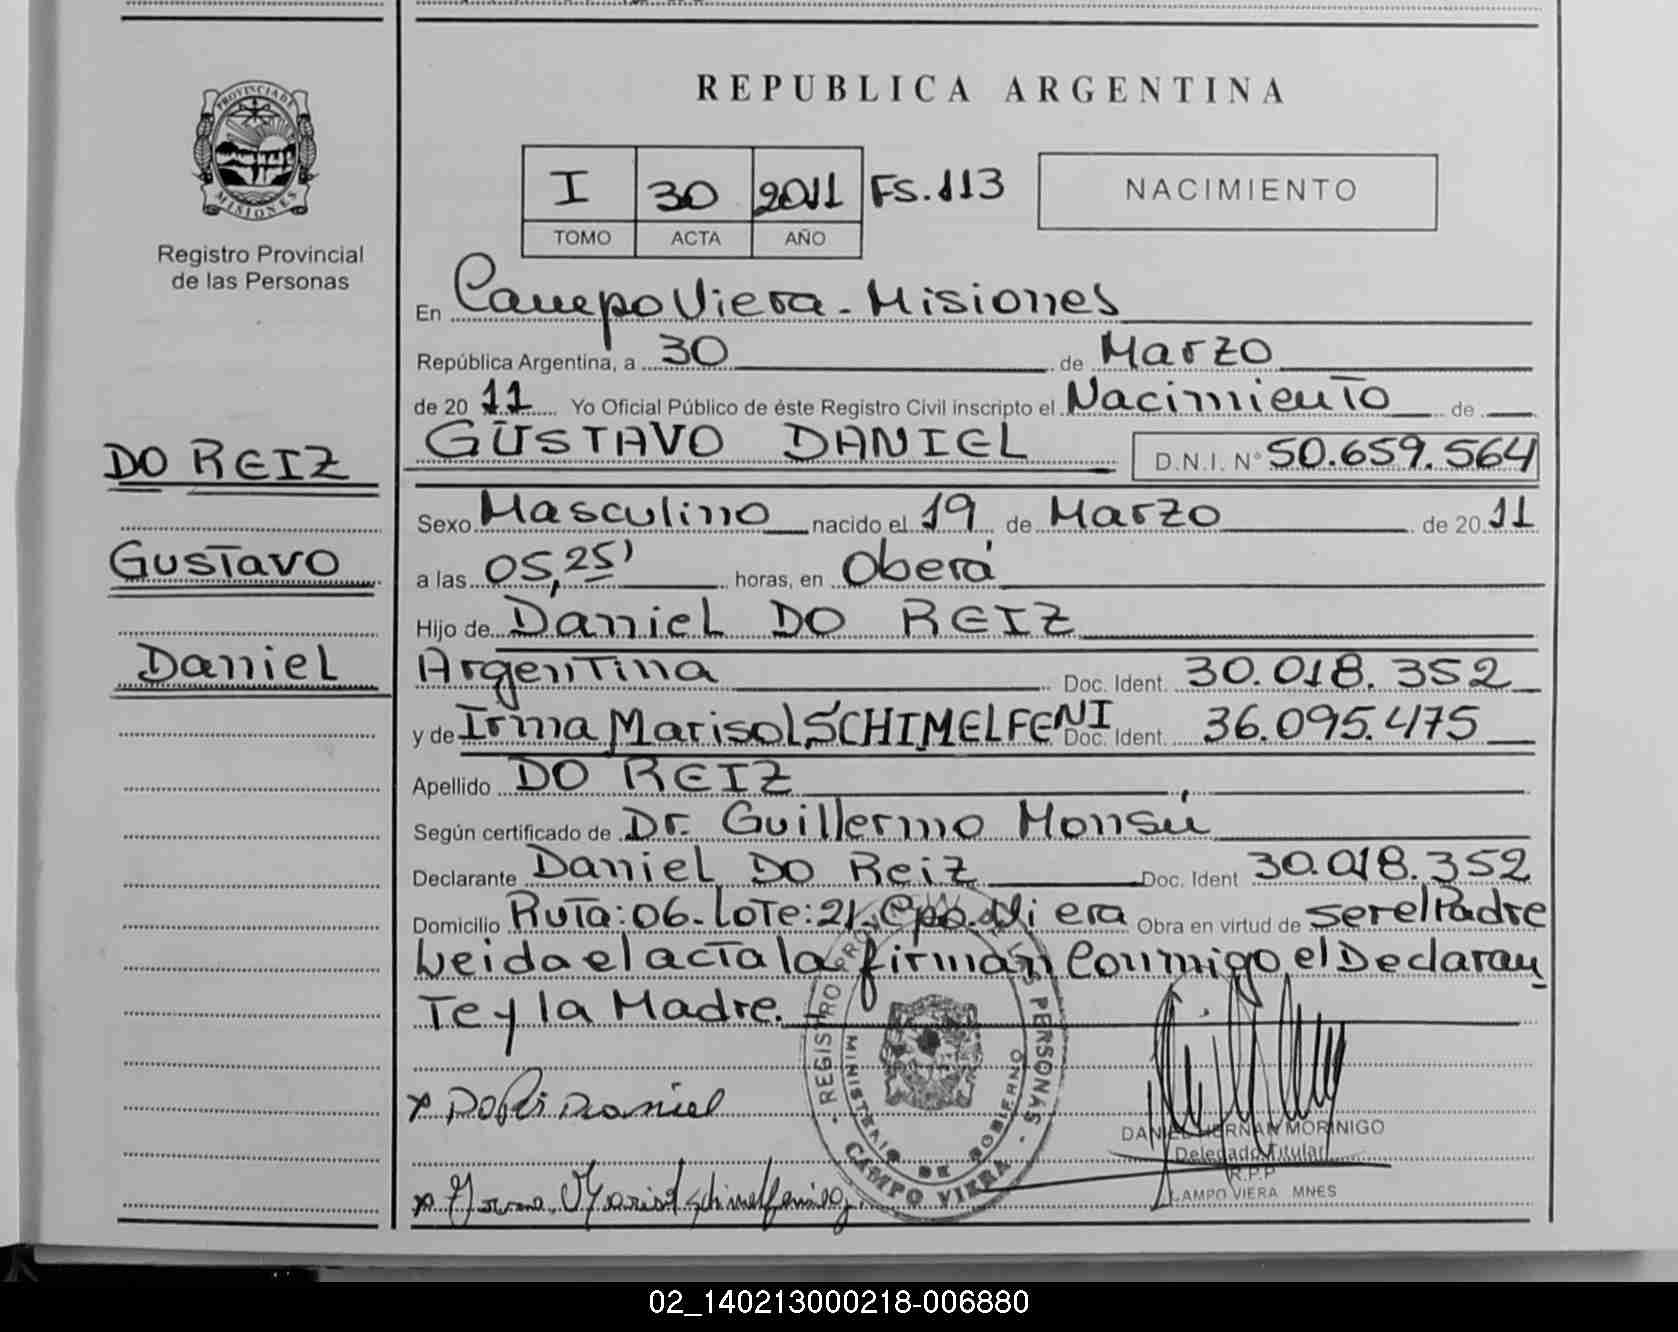 REPUBLICA ARGENTINA
PROVINCIA DE
MISIONES
Registro Provincial
de las Personas
I 30 2011 FS.113
TOMO ACTA AÑO
NACIMIENTO
En Campo Viera - Misiones
República Argentina, a 30 de Marzo
de 20 11 Yo Oficial Público de éste Registro Civil inscripto el Nacimiento de
GUSTAVO DANIEL D.N.I. N° 50.659.564
DO REIZ
Gustavo
Daniel
Sexo Masculino nacido el 19 de Marzo de 20 11
a las 05,25' horas, en Oberá
Hijo de Daniel DO REIZ
Argentina Doc. Ident. 30.018.352
y de Irma Marisol SCHIMELFENI Doc. Ident. 36.095.475
Apellido DO REIZ
Según certificado de Dr. Guillermo Monsú
Declarante Daniel DO Reiz Doc. Ident 30.018.352
Domicilio Ruta: 06- Lote: 21. Cpo. Viera Obra en virtud de ser el Padre
Leida el acta la firman conmigo el Declaran
te y la Madre.
REGISTRO PROV. DE LAS PERSONAS
MINISTERIO DE GOBIERNO
CAMPO VIERA
x Daniel
DANIEL HERNAN MORINIGO
Delegado Titular
R.P.P
CAMPO VIERA MNES
x Irma Marisol
02_140213000218-006880